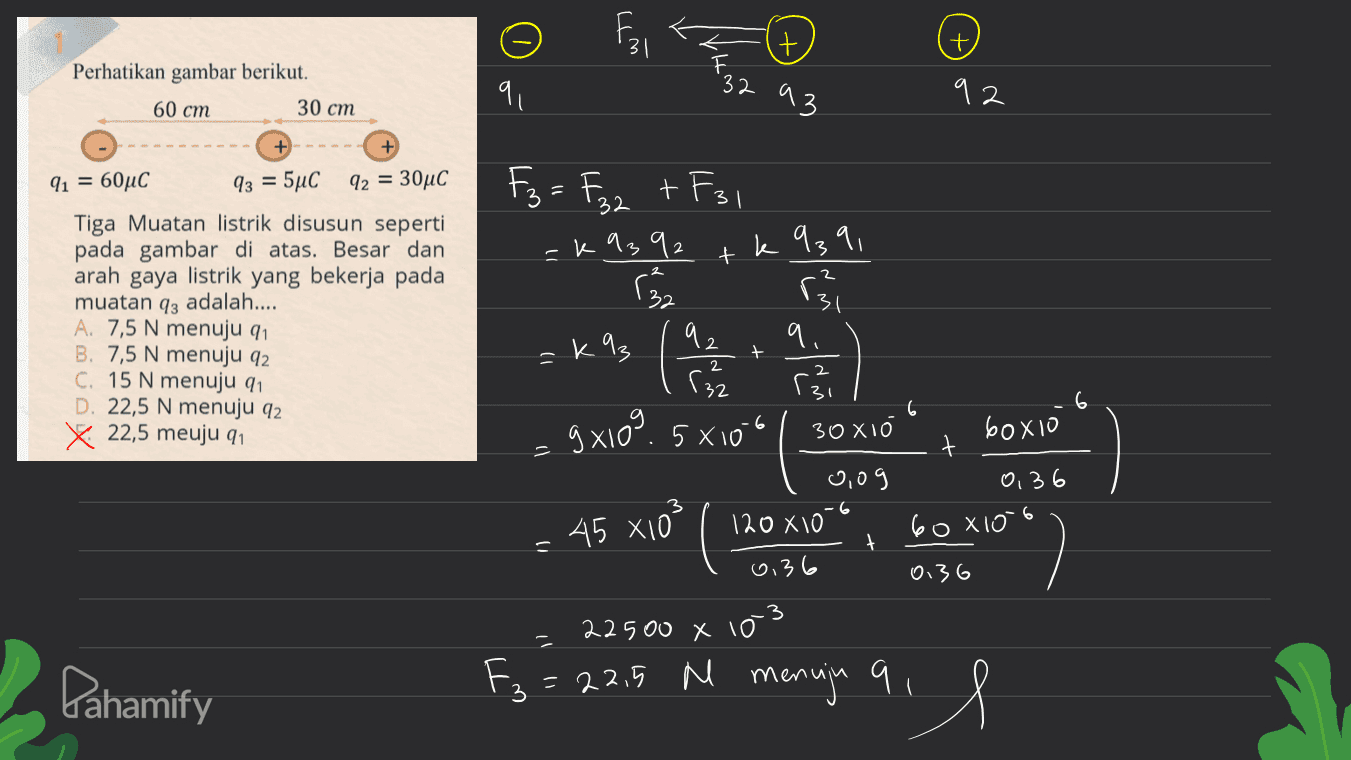 1
Perhatikan gambar berikut.
60 cm 30 cm
- + +
q₁ = 60μC q₃ = 5μC q₂ = 30μC
Tiga Muatan listrik disusun seperti
pada gambar di atas. Besar dan
arah gaya listrik yang bekerja pada
muatan q₃ adalah....
A. 7,5 N menuju q₁
B. 7,5 N menuju q₂
C. 15 N menuju q₁
D. 22,5 N menuju q₂
E. 22,5 meuju q₁
- F₃₁ + +
F₃₂
q₁ q₃ q₂
F₃ = F₃₂ + F₃₁
= k q₃ q₂ / r₃₂² + k q₃ q₁ / r₃₁²
= k q₃ ( q₂ / r₃₂² + q₁ / r₃₁² )
= 9 x 10⁹ . 5 x 10⁻⁶ ( 30 x 10⁻⁶ / 0,09 + 60 x 10⁻⁶ / 0,36 )
= 45 x 10³ ( 120 x 10⁻⁶ / 0,36 + 60 x 10⁻⁶ / 0,36 )
= 22500 x 10⁻³
F₃ = 22,5 N menuju q₁
Pahamify